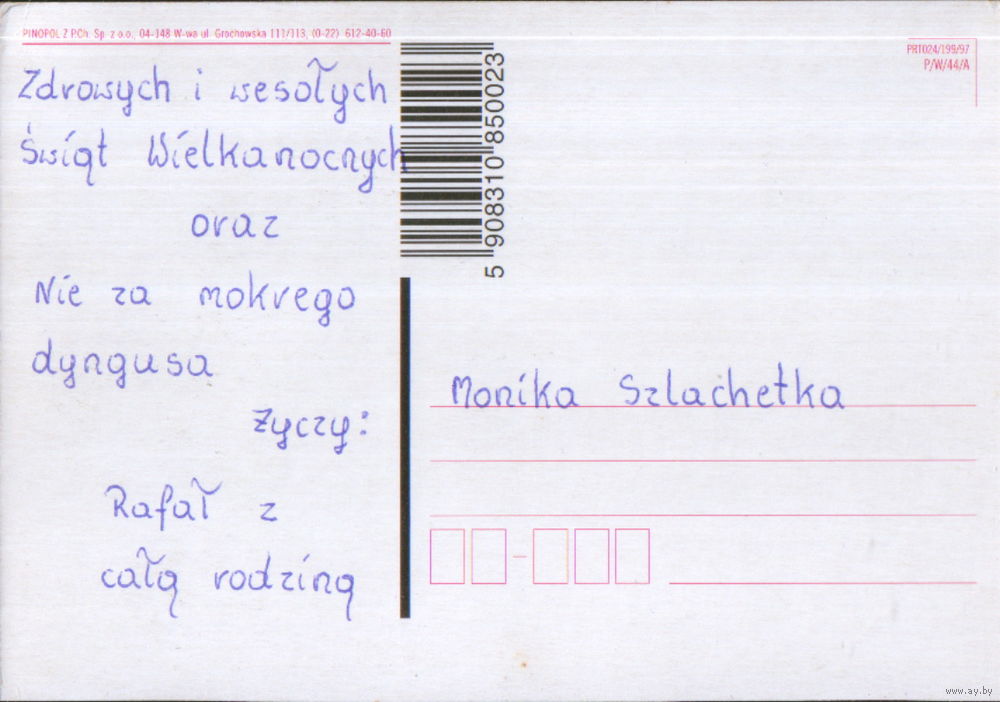 PINOPOL Z P.Ch. Sp. z o.o., 04-148 W-wa ul. Grochowska 111/113, (0-22) 612-40-60
Zdrowych i wesołych
Świąt Wielkanocnych
oraz
Nie za mokrego
dyngusa
życzy:
Rafał z
całą rodziną
5 908310 850023
PRT024/199/97
P/W/44/A
Monika Szlachetka
www.ay.by